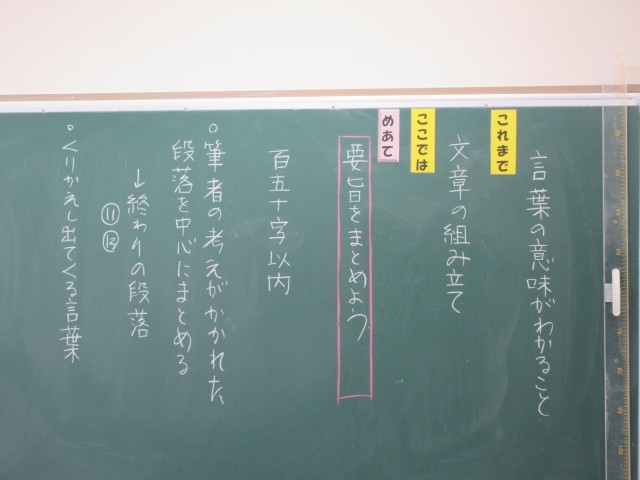 言葉の意味がわかること
これまで
文章の組み立て
ここでは
めあて
要旨をまとめよう
百五十字以内
。筆者の考えがかかれた
段落を中心にまとめる
↓終わりの段落
⑪⑫
。くりかえし出てくる言葉